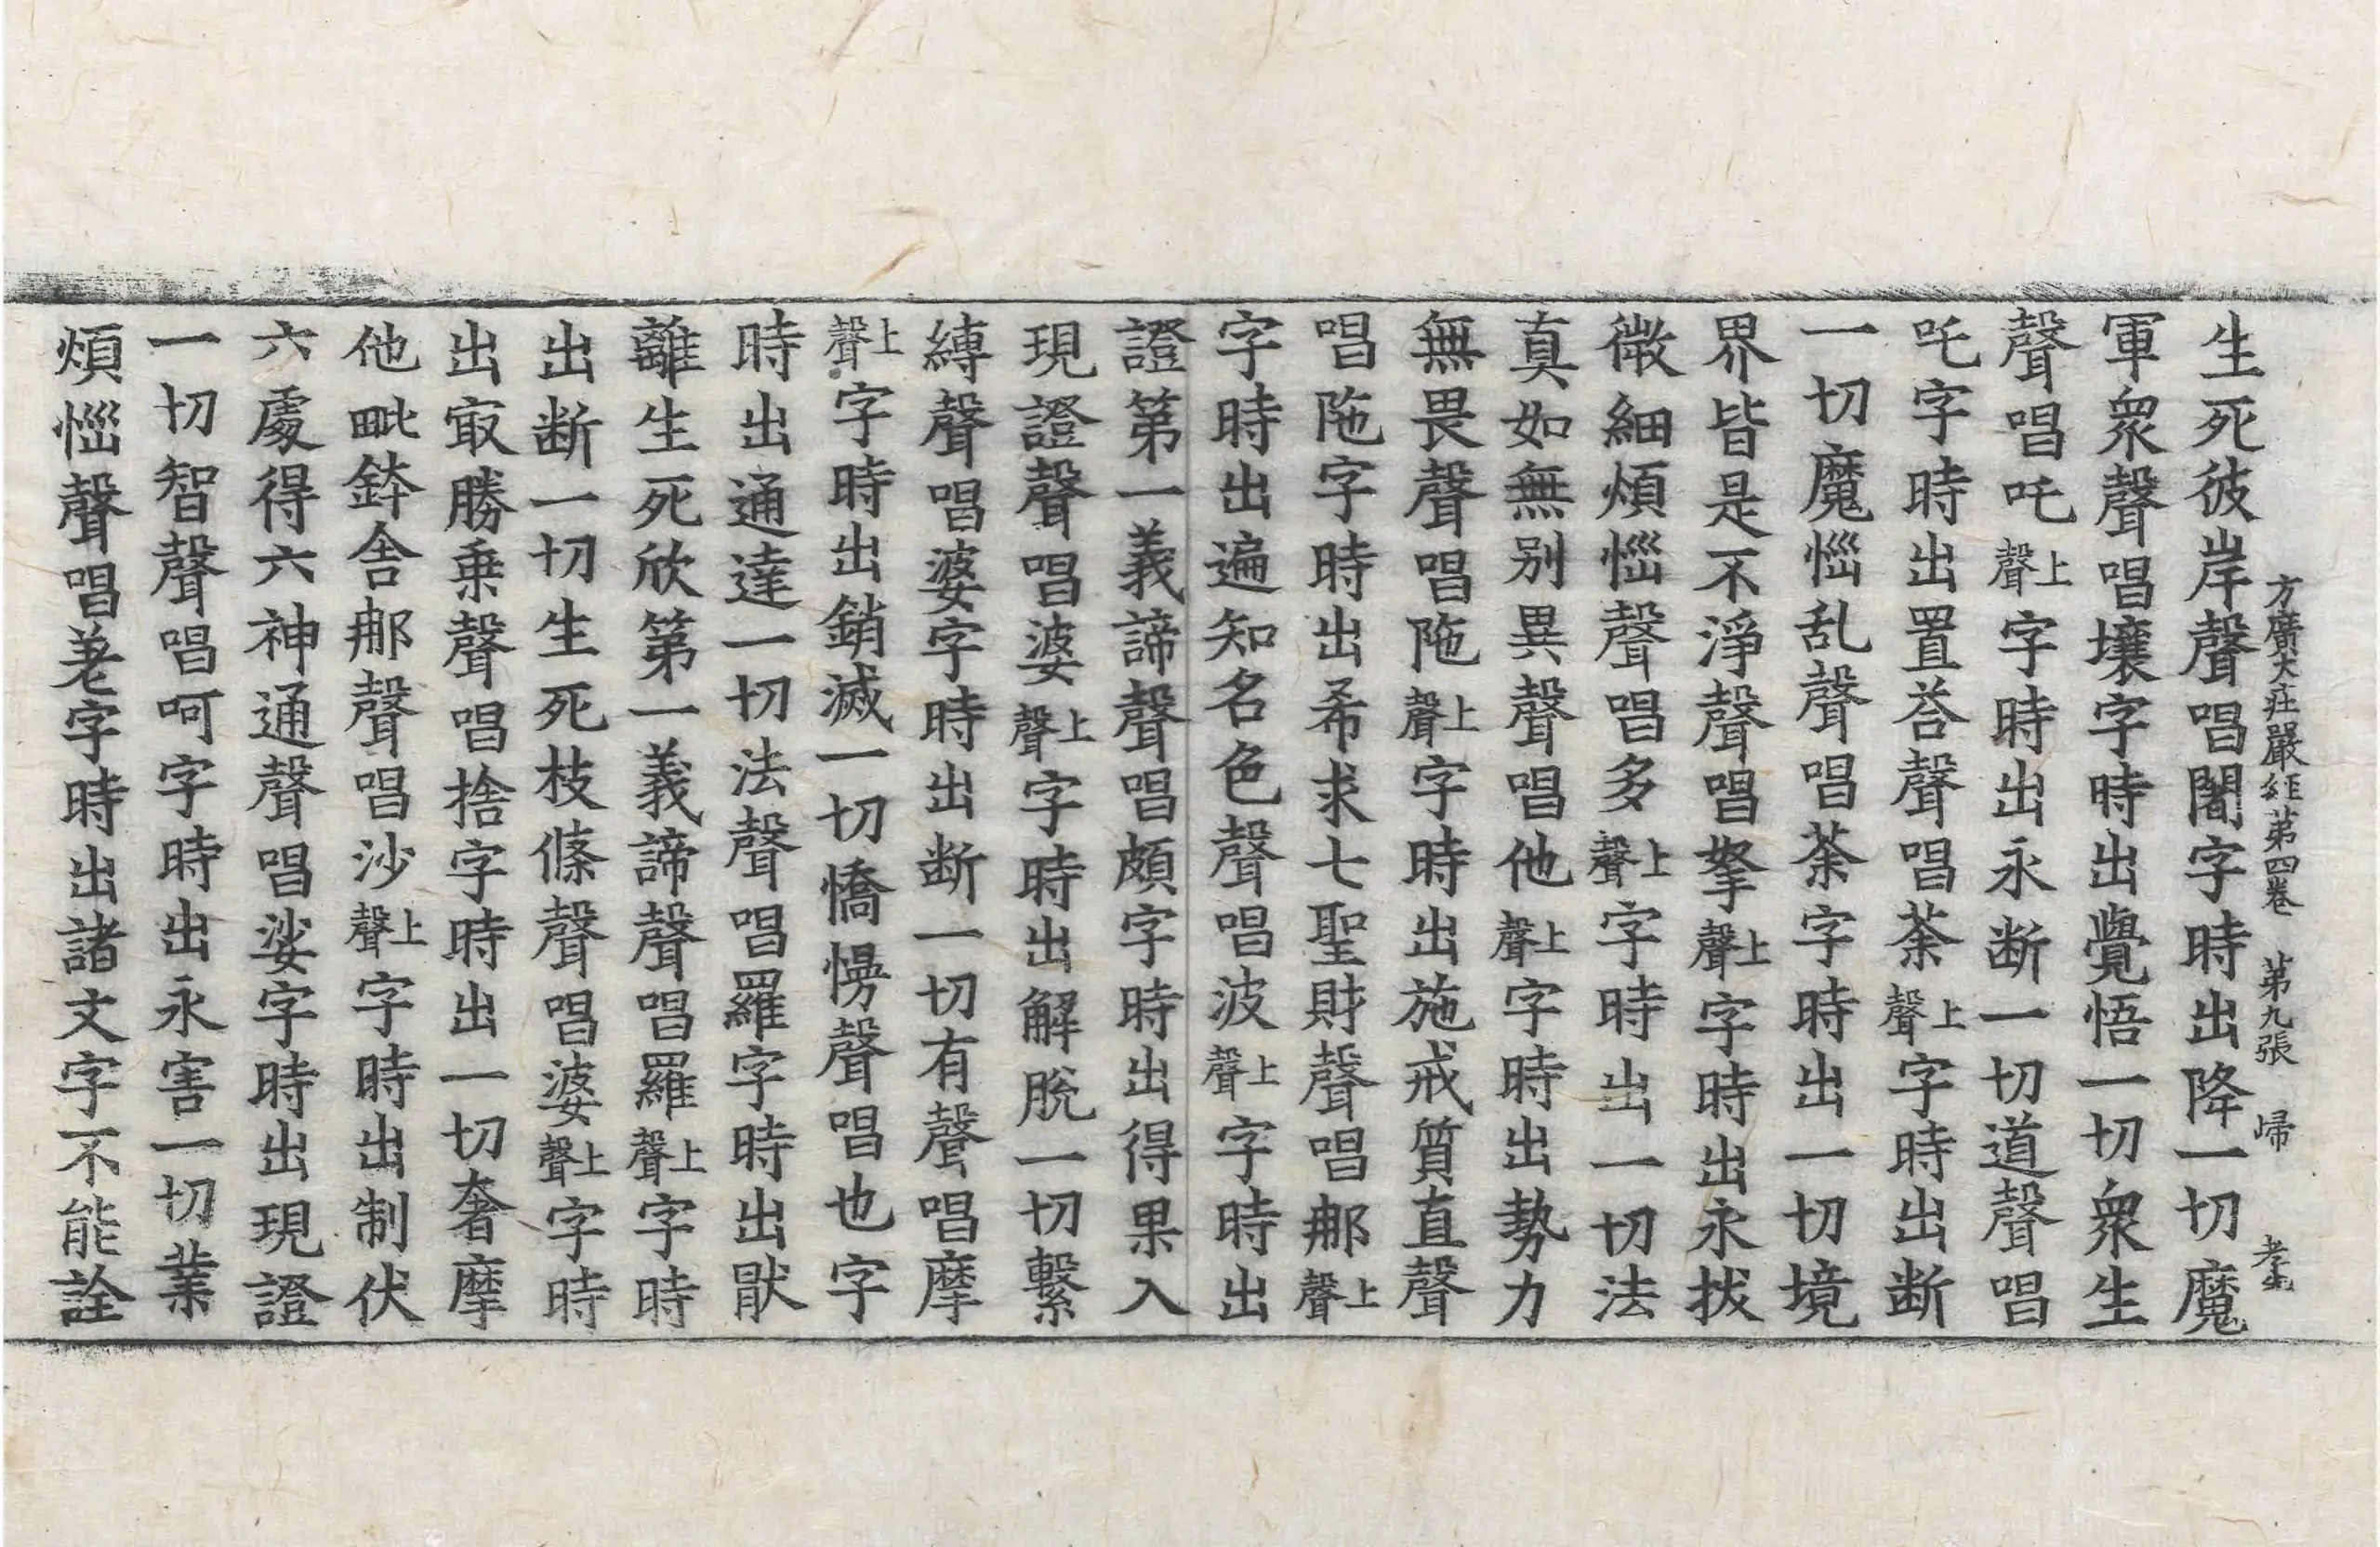 方廣大庄嚴経第四卷　第九張　歸　孝生
生死彼岸聲唱闍字時出降一切魔
軍衆聲唱壤字時出覺悟一切衆生
聲唱吒上聲字時出永断一切道聲唱
吒字時出置荅聲唱荼上聲字時出断
一切魔惱乱聲唱荼字時出一切境
界皆是不淨聲唱拏上聲字時出永拔
微細煩惱聲唱多上聲字時出一切法
真如無别異聲唱他上聲字時出勢力
無畏聲唱陁上聲字時出施戒質直聲
唱陁字時出希求七聖財聲唱那上聲
字時出遍知名色聲唱波上聲字時出
證第一義諦聲唱頗字時出得果入
現證聲唱婆上聲字時出解脫一切繫
縛聲唱婆字時出断一切有聲唱摩
上聲字時出銷滅一切憍慢聲唱也字
時出通達一切法聲唱羅字時出猒
離生死欣第一義諦聲唱羅上聲字時
出断一切生死枝條聲唱婆上聲字時
出㝡勝乗聲唱捨字時出一切奢摩
他毗鉢舍那聲唱沙上聲字時出制伏
六處得六神通聲唱娑字時出現證
一切智聲唱呵字時出永害一切業
煩惱聲唱差字時出諸文字不能詮